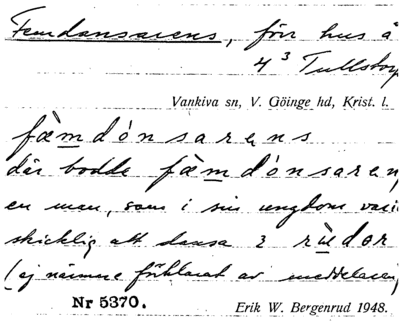 Femdansarens, förr hus å
4³ Tullstorp
Vankiva sn, V. Göinge hd, Krist. l.
fæmdónsarens
där bodde fæmdónsaren,
en man, som i sin ungdom varit
skicklig att dansa i
(ej närmre förklarat av meddelaren)
Nr 5370.
Erik W. Bergenrud 1948.